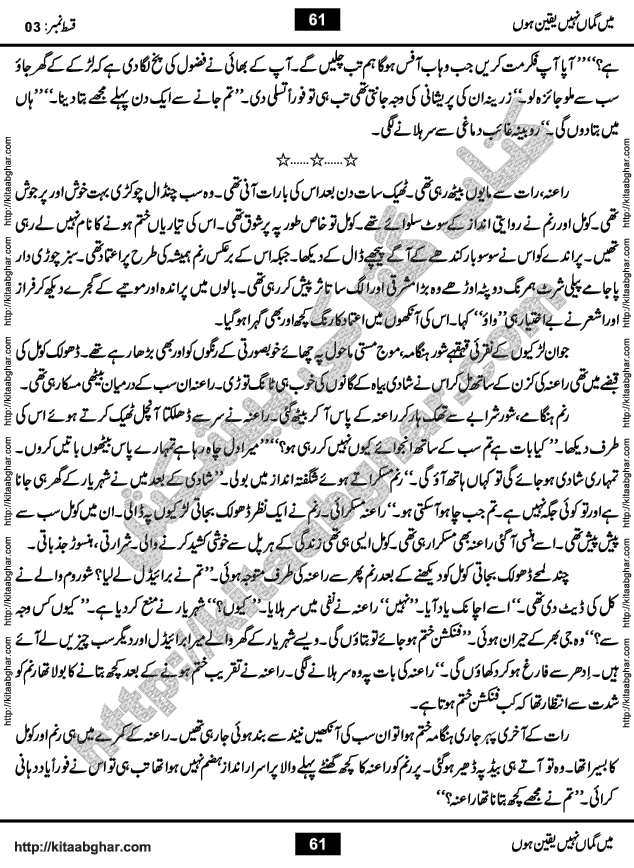 میں گماں نہیں یقین ہوں 61 قسط نمبر: 03
ہے؟‘‘ ’’آپا آپ فکر مت کریں جب وہاب آفس ہوگا ہم تب چلیں گے۔ آپ کے بھائی نے فضول کی پخ لگا دی ہے کہ لڑکے کے گھر جاؤ
سب سے ملو جائزہ لو۔‘‘ زرینہ ان کی پریشانی کی وجہ جانتی تھی تب ہی تو فوراً تسلی دی۔ ’’تم جانے سے ایک دن پہلے مجھے بتا دینا۔‘‘ ’’ہاں
میں بتا دوں گی۔‘‘ روبینہ غائب دماغی سے سر ہلانے لگی۔
☆......☆......☆
راعنہ، رات سے مایوں بیٹھ رہی تھی۔ ٹھیک سات دن بعد اس کی بارات آنی تھی۔ وہ سب چنڈال چوکڑی بہت خوش اور پر جوش
تھی۔ کومل اور رنم نے روایتی انداز کے سوٹ سلوائے تھے۔ کومل تو خاص طور پہ پر شوق تھی۔ اس کی تیاریاں ختم ہونے کا نام نہیں لے رہی
تھیں۔ پراندے کو اس نے سو سو بار کندھے کے آگے پیچھے ڈال کے دیکھا۔ جبکہ اس کے برعکس رنم ہمیشہ کی طرح پر اعتماد تھی۔ سبز چوڑی دار
پاجامے پیلی شرٹ ہمرنگ دوپٹہ اوڑھے وہ بڑا مشرقی اور الگ سا تاثر پیش کر رہی تھی۔ بالوں میں پراندہ اور موتیے کے گجرے دیکھ کر فراز
اور اشعر نے بے اختیار ہی ’’واؤ‘‘ کہا۔ اس کی آنکھوں میں اعتماد کا رنگ کچھ اور بھی گہرا ہوگیا۔
جوان لڑکیوں کے نقرئی قہقہے شور ہنگامہ، موج مستی ماحول پہ چھائے خوبصورتی کے رنگوں کو اور بھی بڑھا رہے تھے۔ ڈھولک کومل کی
قبضے میں تھی راعنہ کی کزن کے ساتھ مل کر اس نے شادی بیاہ کے گانوں کی خوب ہی ٹانگ توڑی۔ راعنہ ان سب کے درمیان بیٹھی مسکا رہی تھی۔
رنم ہنگامے، شور شرابے سے تھک ہار کر راعنہ کے پاس آ کر بیٹھ گئی۔ راعنہ نے سر سے ڈھلکتا آنچل ٹھیک کرتے ہوئے اس کی
طرف دیکھا۔ ’’کیا بات ہے تم سب کے ساتھ انجوائے کیوں نہیں کر رہی ہو؟‘‘ ’’میرا دل چاہ رہا ہے تمہارے پاس بیٹھوں باتیں کروں۔
تمہاری شادی ہو جائے گی تو کہاں ہاتھ آؤ گی۔‘‘ رنم مسکراتے ہوئے شگفتہ انداز میں بولی۔ ’’شادی کے بعد میں نے شہریار کے گھر ہی جانا
ہے اور تو کوئی جگہ نہیں ہے۔ تم جب چاہو آسکتی ہو۔‘‘ راعنہ مسکرائی۔ رنم نے ایک نظر ڈھولک بجاتی لڑکیوں پہ ڈالی۔ ان میں کومل سب سے
پیش پیش تھی۔ اسے ہنسی آ گئی راعنہ بھی مسکرا رہی تھی۔ کومل ایسی ہی تھی زندگی کے ہر پل سے خوشی کشید کرنے والی۔ شرارتی، ہنسوڑ جذباتی۔
چند لمحے ڈھولک بجاتی کومل کو دیکھنے کے بعد رنم پھر سے راعنہ کی طرف متوجہ ہوئی۔ ’’تم نے برائیڈل لے لیا؟ شوروم والے نے
کل کی ڈیٹ دی تھی۔‘‘ اسے اچانک یاد آیا۔ ’’نہیں‘‘ راعنہ نے نفی میں سر ہلایا۔ ’’کیوں؟‘‘ شہریار نے منع کر دیا ہے۔‘‘ ’’کیوں کس وجہ
سے؟‘‘ وہ جی بھر کے حیران ہوئی۔ ’’فنکشن ختم ہو جائے تو بتاؤں گی۔ ویسے شہریار کے گھر والے میرا برائیڈل اور دیگر سب چیزیں لے آئے
ہیں۔ اِدھر سے فارغ ہو کر دکھاؤں گی۔‘‘ راعنہ کی بات پہ وہ سر ہلانے لگی۔ راعنہ نے تقریب ختم ہونے کے بعد کچھ بتانے کا بولا تھا رنم کو
شدت سے انتظار تھا کہ کب فنکشن ختم ہوتا ہے۔
رات کے آخری پہر جاری ہنگامہ ختم ہوا تو ان سب کی آنکھیں نیند سے بند ہوئی جا رہی تھیں۔ راعنہ کے کمرے میں ہی رنم اور کومل
کا بسیرا تھا۔ وہ تو آتے ہی بیڈ پہ ڈھیر ہوگئی۔ پر رنم کو راعنہ کا کچھ گھنٹے پہلے والا پر اسرار انداز ہضم نہیں ہوا تھا تب ہی تو اس نے فوراً یاد دہانی
کرائی۔ ’’تم نے مجھے کچھ بتانا تھا راعنہ؟‘‘
http://kitaabghar.com 61 میں گماں نہیں یقین ہوں
http://kitaabghar.com
http://kitaabghar.com
http://kitaabghar.com
http://kitaabghar.com
http://kitaabghar.com
http://kitaabghar.com
http://kitaabghar.com
http://kitaabghar.com
http://kitaabghar.com
http://kitaabghar.com
کتاب گھر کی پیشکش
http://kitaabghar.com